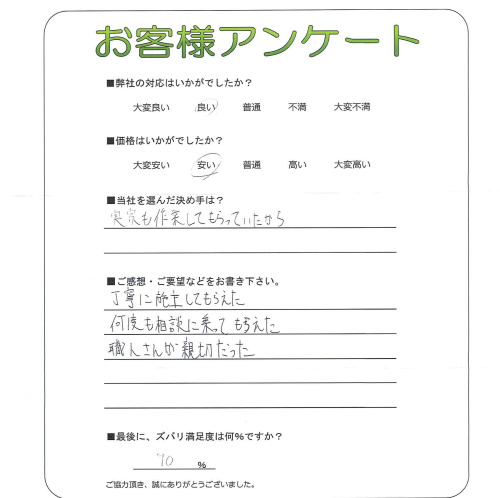 お客様アンケート
■弊社の対応はいかがでしたか？
大変良い 良い 普通 不満 大変不満
■価格はいかがでしたか？
大変安い 安い 普通 高い 大変高い
■当社を選んだ決め手は？
実家も作業してもらっていたから
■ご感想・ご要望などをお書き下さい。
丁寧に施工してもらえた
何度も相談に乗ってもらえた
職人さんが親切だった
■最後に、ズバリ満足度は何％ですか？
90 ％
ご協力頂き、誠にありがとうございました。